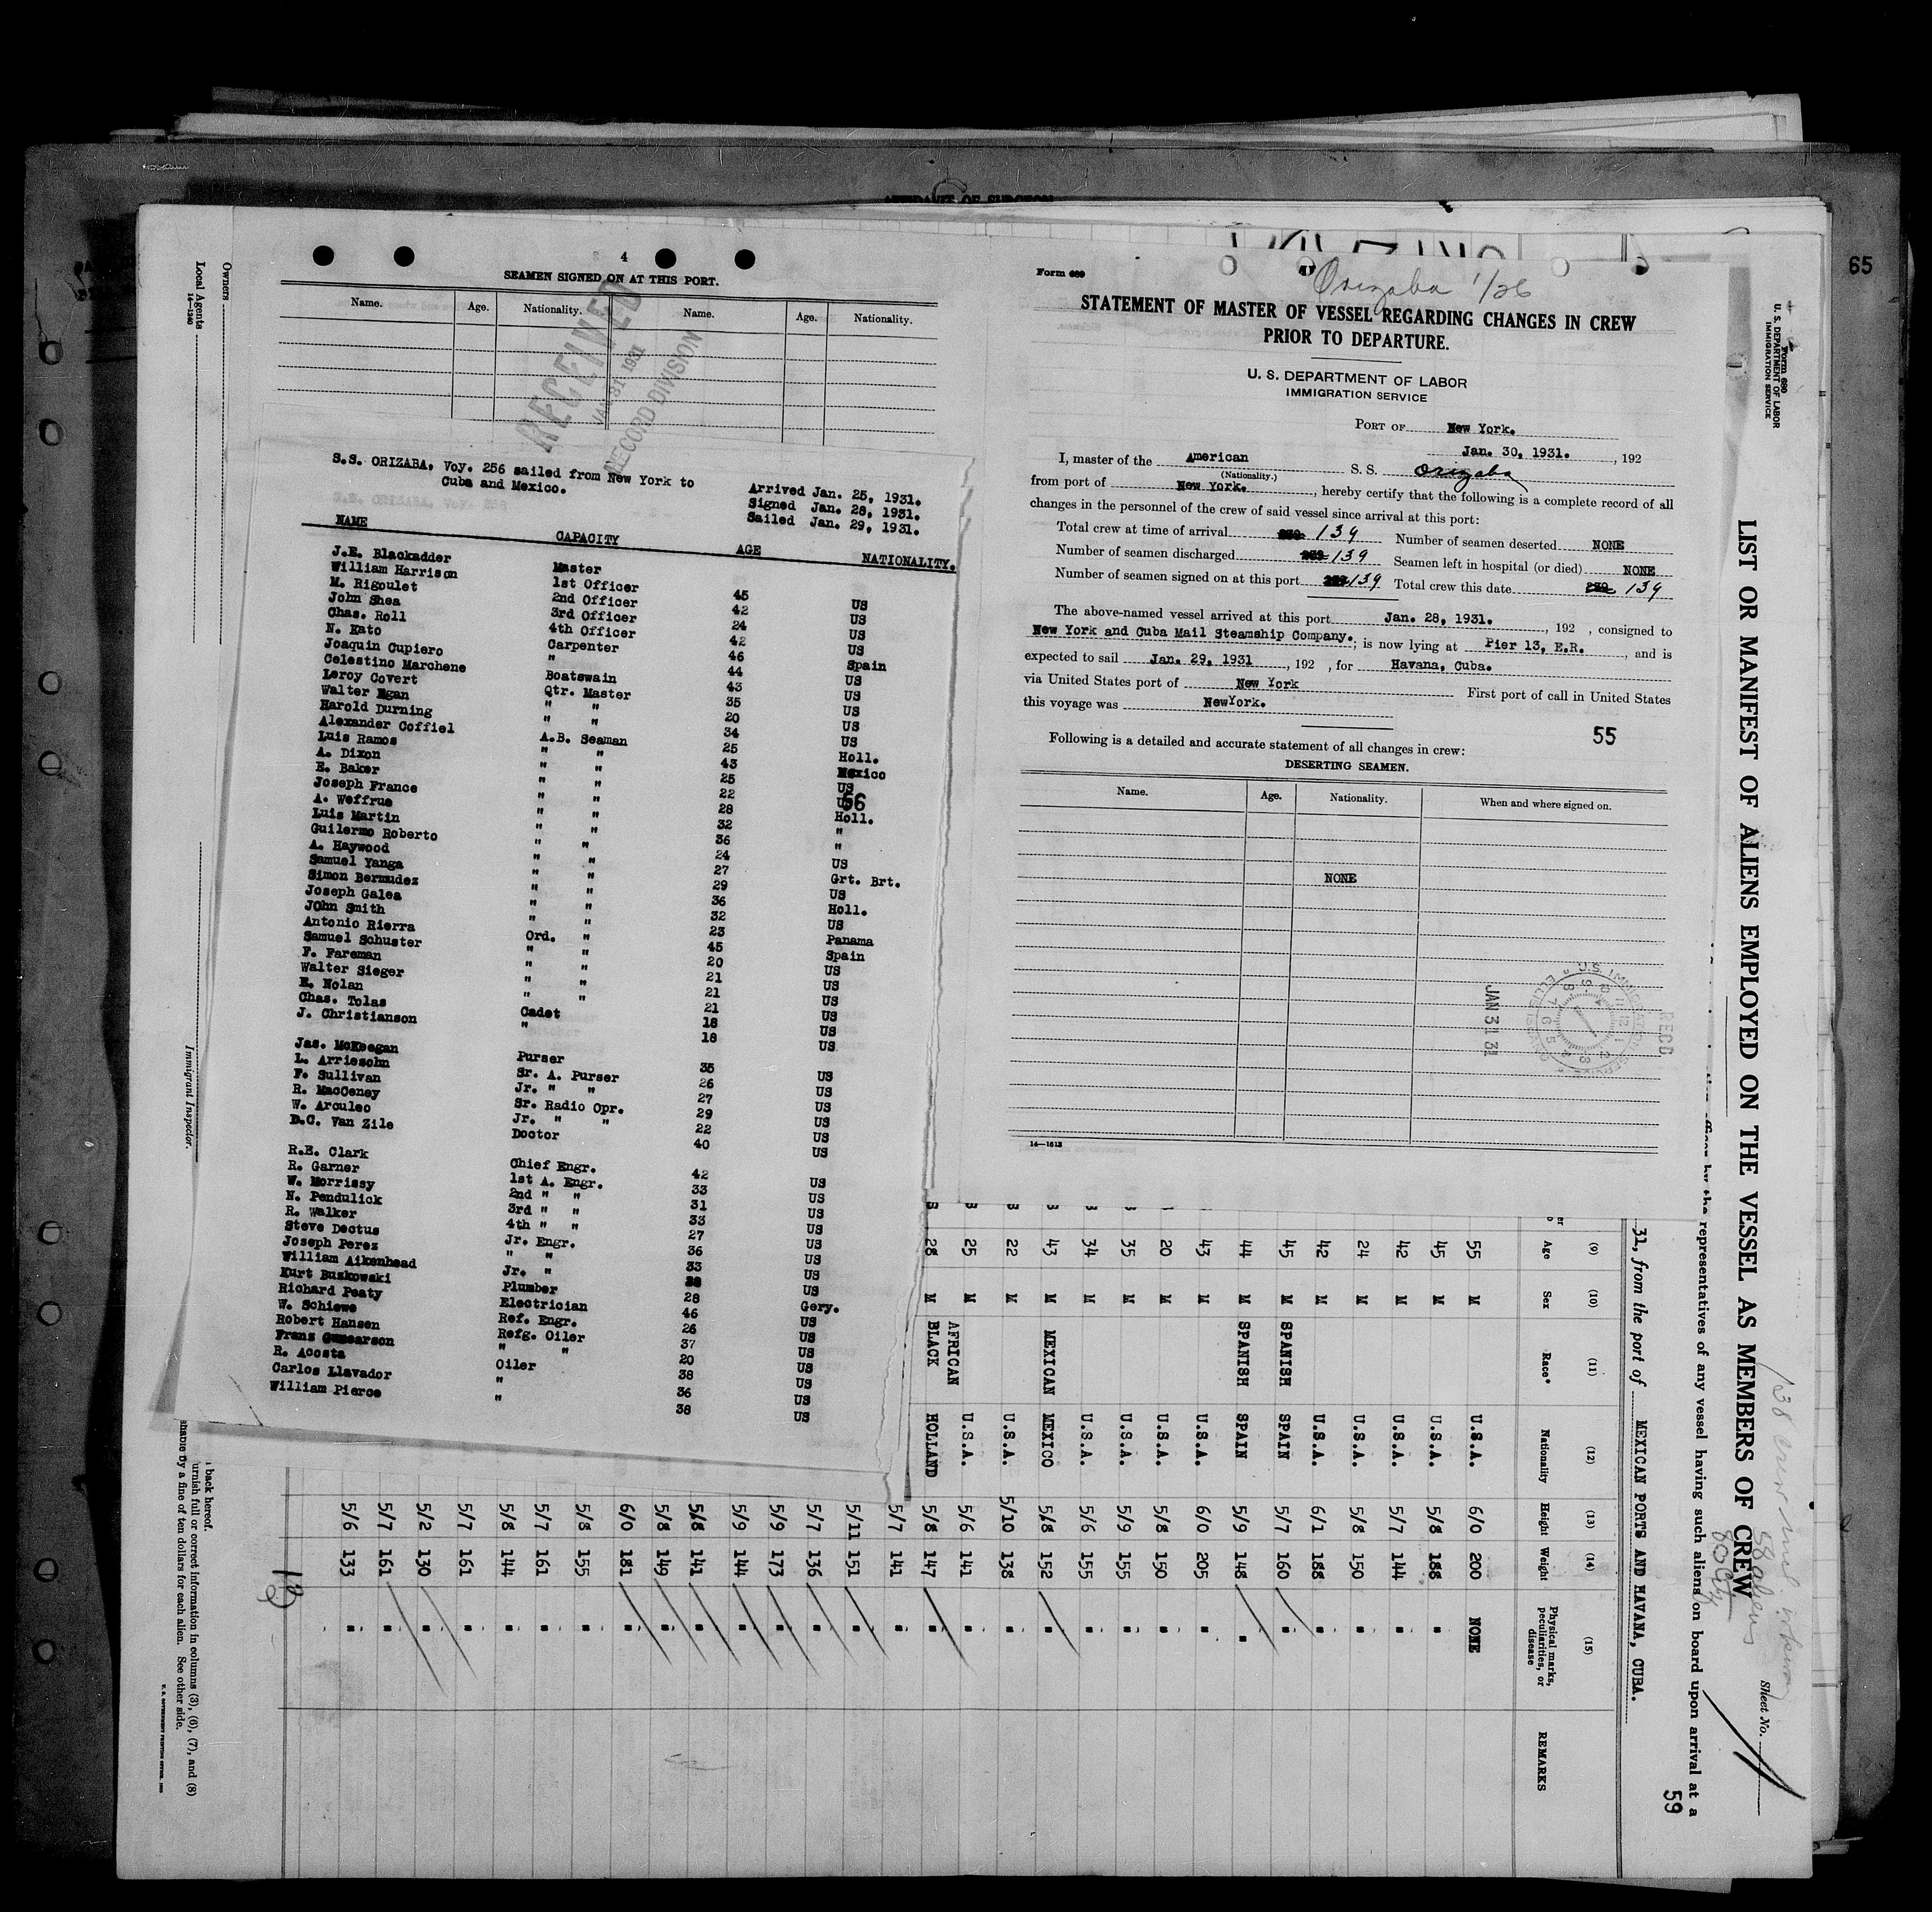 65
AFFIDAVIT OF SURGEON
Owners
Local Agents
14—1240
Immigrant Inspector.
4
SEAMEN SIGNED ON AT THIS PORT.
Name. Age. Nationality. Name. Age. Nationality.
RECEIVED
JAN 31 1931
RECORD DIVISION
S.S. ORIZABA, Voy. 256 sailed from New York to
Cuba and Mexico.
Arrived Jan. 25, 1931.
Signed Jan. 28, 1931.
Sailed Jan. 29, 1931.
NAME CAPACITY AGE NATIONALITY.
J.E. Blackadder Master
William Harrison 1st Officer 45 US
M. Rigoulet 2nd Officer 42 US
John Shea 3rd Officer 24 US
Chas. Roll 4th Officer 42 US
N. Kato Carpenter 46 Spain
Joaquin Cupiero " 44 US
Celestino Marchene Boatswain 43 US
Leroy Covert Qtr. Master 35 US
Walter Egan " " 20 US
Harold Durning " " 34 US
Alexander Coffiel A.B. Seaman 25 Holl.
Luis Ramos " " 43 Mexico
A. Dixon " " 25 US
E. Baker " " 22 US
56
Joseph France " " 28 Holl.
A. Weffrue " " 32 "
Luis Martin " " 36 "
Guilermo Roberto " " 24 US
A. Haywood " " 27 Grt. Brt.
Samuel Yanga " " 29 US
Simon Bermudez " " 36 Holl.
Joseph Galea " " 32 US
JOhn Smith " " 23 Panama
Antonio Rierra Ord. " 45 Spain
Samuel Schuster " " 20 US
F. Fareman " " 21 US
Walter Sieger " " 21 US
E. Nolan " " 21 US
Chas. Tolas Cadet 18 US
J. Christianson " 18 US
Jas. McKeegan Purser 35 US
L. Arriesohn Sr. A. Purser 26 US
F. Sullivan Jr. " " 27 US
R. MacCeney Sr. Radio Opr. 29 US
W. Arculeo Jr. " " 22 US
D.C. Van Zile Doctor 40 US
R.E. Clark Chief Engr. 42 US
R. Garner 1st A. Engr. 33 US
W. Morrissy 2nd " " 31 US
N. Pendulick 3rd " " 33 US
R. Walker 4th " " 27 US
Steve Dectus Jr. Engr. 36 US
Joseph Perez " " 33 US
William Aikenhead Jr. " 38 US
Kurt Buzkowski Plumber 28 Gery.
Richard Peaty Electrician 46 US
W. Schiewe Ref. Engr. 26 US
Robert Hansen Refg. Oiler 37 US
Franz " " 20 US
R. Acosta Oiler 38 US
Carlos Llavador " 36 US
William Pierce " 38 US
Form 689
Orizaba 1/26
STATEMENT OF MASTER OF VESSEL REGARDING CHANGES IN CREW
PRIOR TO DEPARTURE.
U. S. DEPARTMENT OF LABOR
IMMIGRATION SERVICE
PORT OF New York.
Jan. 30, 1931. , 192
I, master of the American S. S. Orizaba
(Nationality.)
from port of New York. , hereby certify that the following is a complete record of all
changes in the personnel of the crew of said vessel since arrival at this port:
Total crew at time of arrival 139 Number of seamen deserted NONE
Number of seamen discharged 139 Seamen left in hospital (or died) NONE
Number of seamen signed on at this port 139 Total crew this date 139
The above-named vessel arrived at this port Jan. 28, 1931. , 192 , consigned to
New York and Cuba Mail Steamship Company. ; is now lying at Pier 13, E.R. , and is
expected to sail Jan. 29, 1931 , 192 , for Havana, Cuba.
via United States port of New York First port of call in United States
this voyage was NewYork.
55
Following is a detailed and accurate statement of all changes in crew:
DESERTING SEAMEN.
Name. Age. Nationality. When and where signed on.
NONE
JAN 31 31
RECD
U.S. IMMIGRATION SERVICE ELLIS ISLAND
14—1613
Form 680
U. S. DEPARTMENT OF LABOR
IMMIGRATION SERVICE
Sheet No.
LIST OR MANIFEST OF ALIENS EMPLOYED ON THE VESSEL AS MEMBERS OF CREW
58 aliens
80 City
representatives of any vessel having such aliens on board upon arrival at a
59
31, from the port of MEXICAN PORTS AND HAVANA, CUBA.
(9) (10) (11) (12) (13) (14) (15)
Age Sex Race* Nationality Height Weight Physical marks, peculiarities, or disease REMARKS
55 M U.S.A. 6/0 200 NONE
45 M U.S.A. 5/8 188 "
42 M U.S.A. 5/7 144 "
24 M U.S.A. 5/8 150 "
42 M U.S.A. 6/1 188 "
45 M SPANISH SPAIN 5/7 160
44 M SPANISH SPAIN 5/9 148 "
43 M U.S.A. 6/0 205 "
20 M U.S.A. 5/8 150 "
35 M U.S.A. 5/9 155 "
34 M U.S.A. 5/6 155 "
43 M MEXICAN MEXICO 5/8 152 "
22 M U.S.A. 5/10 138 "
25 M U.S.A. 5/6 141 "
28 M AFRICAN BLACK HOLLAND 5/8 147 "
5/7 141 "
5/11 151 "
5/7 136 "
5/9 173 "
5/9 144 "
5/8 141 "
5/8 149 "
6/0 181 "
5/8 155 "
5/7 161 "
5/8 144 "
5/7 161 "
5/2 130 "
5/7 161 "
5/6 133 "
13
back hereof.
urnish full or correct information in columns (3), (6), (7), and (8)
shable by a fine of ten dollars for each alien. See other side.
U. S. GOVERNMENT PRINTING OFFICE